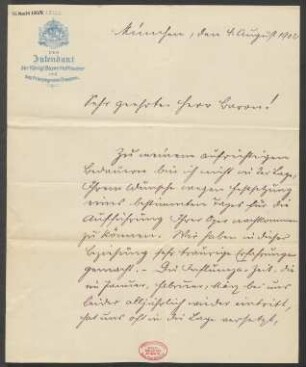 DER
Intendant
der Königl. Bayer. Hoftheater
und
des Prinzregenten-Theaters.
München, den 4. August 1902
Sehr geehrter Herr Baron!
Zu meinem aufrichtigen
Bedauern bin ich nicht in der Lage,
Ihrem Wunsche wegen Festsetzung
eines bestimmten Tages für die
Aufführung Ihrer Oper nachkommen
zu können. Wir haben in dieser
Beziehung sehr traurige Erfahrungen
gemacht. – Die Influenza-Zeit, die
im Januar, Februar, März bei uns
leider alljährlich wieder eintritt,
hat uns oft in die Lage versetzt,